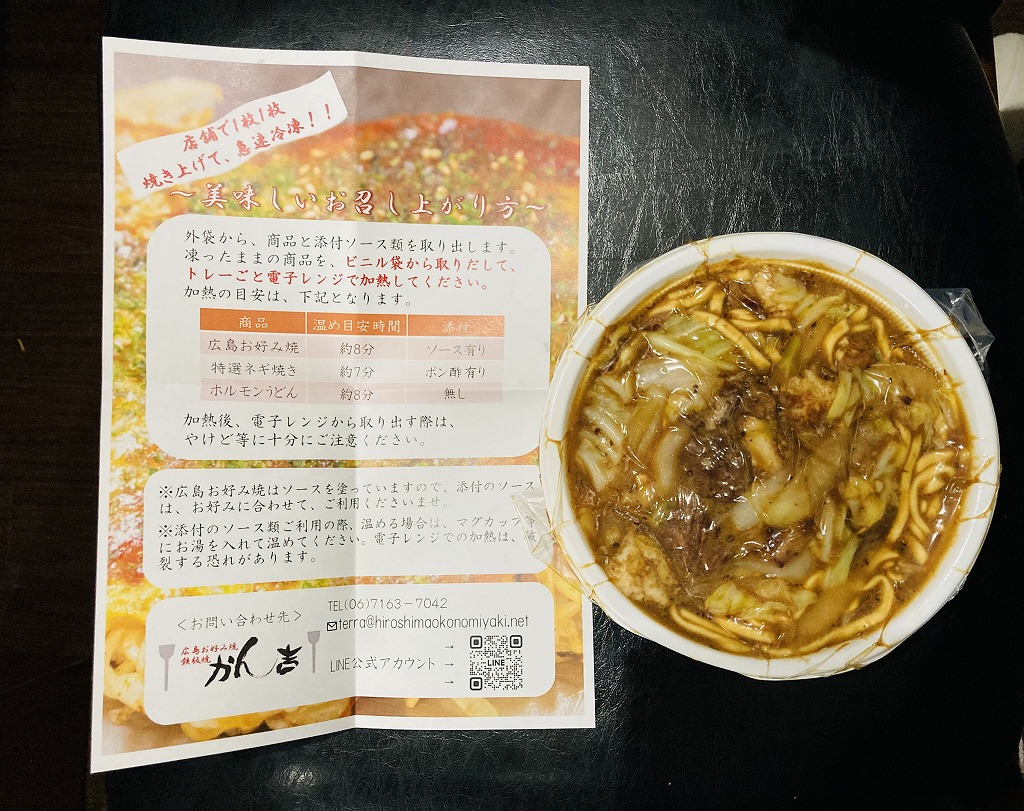 店舗で1枚1枚
焼き上げて、急速冷凍！！
～美味しいお召し上がり方～
外袋から、商品と添付ソース類を取り出します。
凍ったままの商品を、ビニル袋から取りだして、
トレーごと電子レンジで加熱してください。
加熱の目安は、下記となります。
商品 温め目安時間 添付
広島お好み焼 約8分 ソース有り
特選ネギ焼き 約7分 ポン酢有り
ホルモンうどん 約8分 無し
加熱後、電子レンジから取り出す際は、
やけど等に十分にご注意ください。
※広島お好み焼はソースを塗っていますので、添付のソース
は、お好みに合わせて、ご利用くださいませ。
※添付のソース類ご利用の際、温める場合は、マグカップ等
にお湯を入れて温めてください。電子レンジでの加熱は、破
裂する恐れがあります。
＜お問い合わせ先＞
TEL(06)7163-7042
terra@hiroshimaokonomiyaki.net
広島お好み焼
鉄板焼
かん吉
LINE公式アカウント
→
→
→
LINE